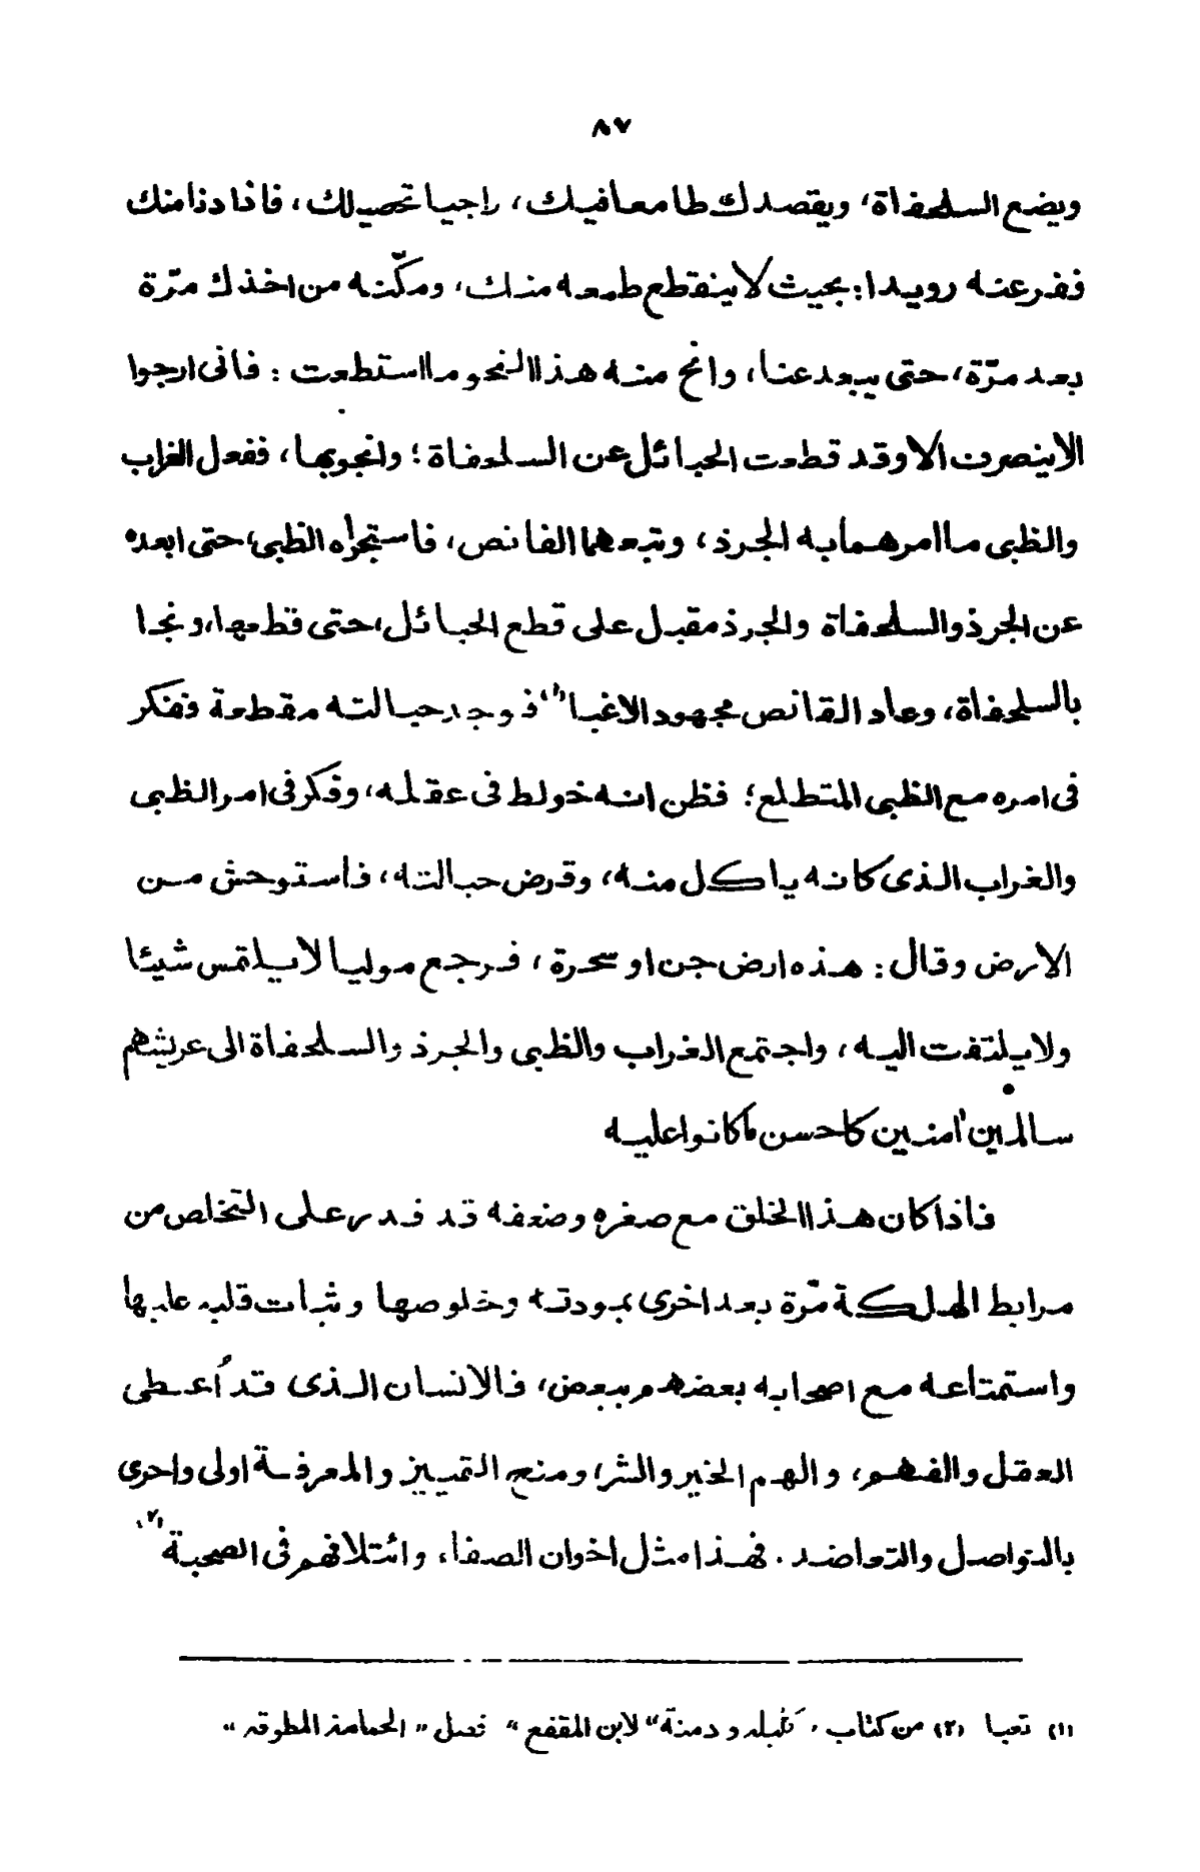 ٨٧
ويضع السلحفاة، ويقصدك طامعا فيك، راجيا تحصيلك، فاذا دنا منك
ففر عنه رويدا: بحيث لا ينقطع طمعه منك، ومكّنه من اخذك مرّة
بعد مرّة، حتى يبعد عنا، وانح منه هذا النحو ما استطعت : فانى ارجوا
الا ينصرف الا وقد قطعت الحبائل عن السلحفاة؛ وانجو بها، ففعل الغراب
والظبى ما امرهما به الجرذ، وتبعهما القانص، فاستجرأه الظبى، حتى ابعده
عن الجرذ والسلحفاة والجرذ مقبل على قطع الحبائل، حتى قطعها، ونجا
بالسلحفاة، وعاد القانص مجهود الاغبا (١)، فوجد حبالته مقطعة ففكر
فى امره مع الظبى المتطلع؛ فظن انه خولط فى عقله، وفكر فى امر الظبى
والغراب الذى كانه ياكل منه، وقرض حبالته، فاستوحش من
الارض وقال : هذه ارض جن او سحرة، فرجع موليا لا يلتمس شيئا
ولا يلتفت اليه، واجتمع الغراب والظبى والجرذ والسلحفاة الى عريشهم
سالمين آمنين كاحسن ما كانوا عليه
فاذا كان هذا الخلق مع صغره وضعفه قد قدر على التخلص من
مرابط الهلكة مرّة بعد اخرى بمودته وخلوصها وثبات قلبه عليها
واستمتاعه مع اصحابه بعضهم ببعض، فالانسان الذى قد أعطى
العقل والفهم، والهم الخير والشر، ومنح التمييز والمعرفة اولى واحرى
بالتواصل والتعاضد . فهذا مثل اخوان الصفا، وائتلافهم فى الصحبة (٢).
(١) تعبا (٢) من كتاب "كليله ودمنة" لابن المقفع" فصل "الحمامة المطوقه"